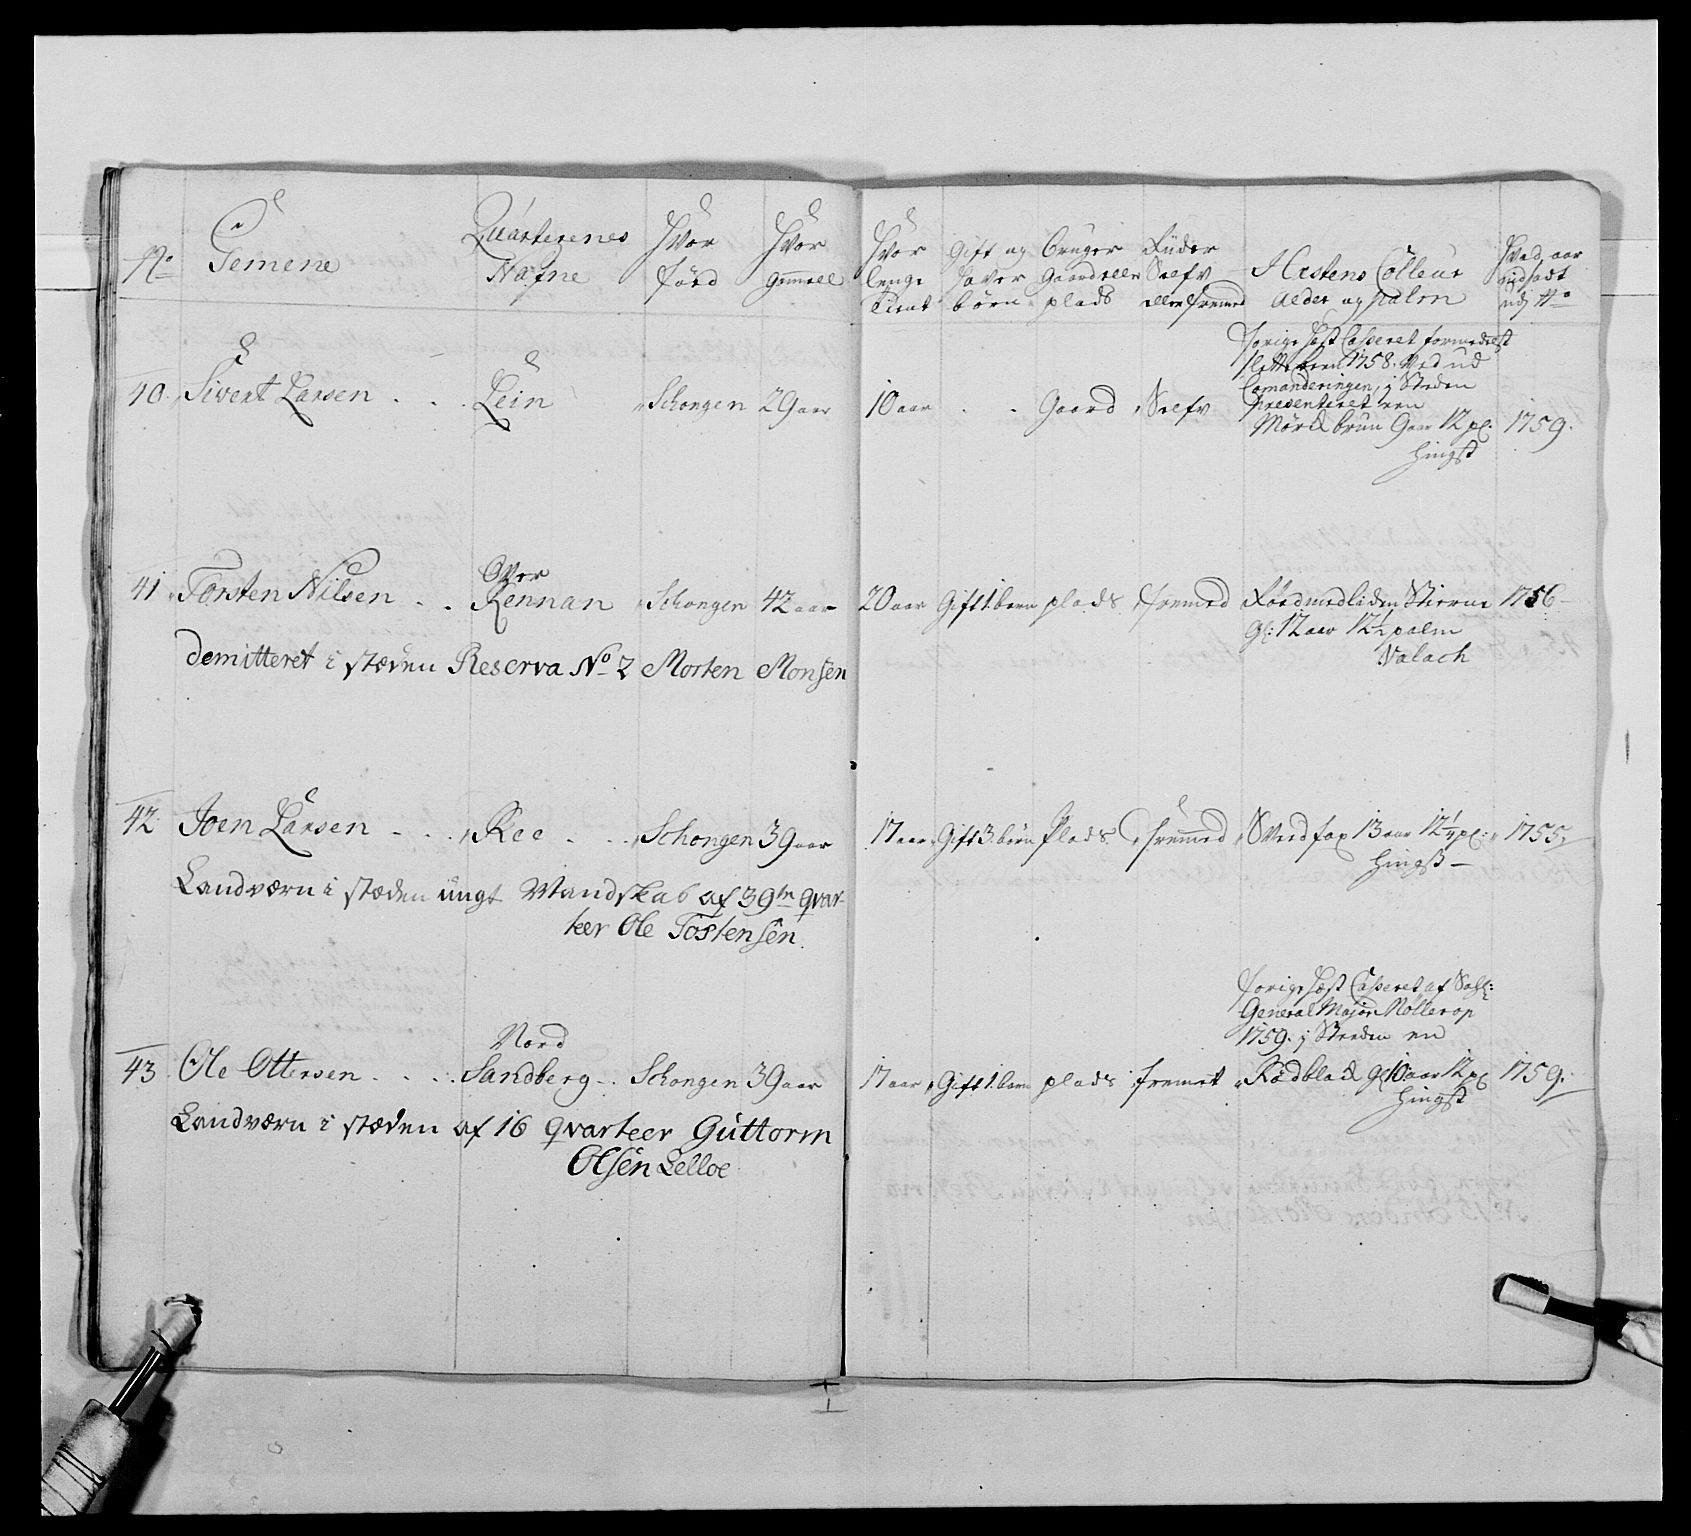 No
Gemene
Quarterenes
Nafne
Hvor
förd
Hvor
gammell
Hvor
lenge
tient
Gift og
haver
börn
bruger
Gaard eller
plads
Rüder
Selfv
eller fremed
Hestens Colleur
Alder og palm
Hvad aar
indsadt
udj No
40. Sivert Larsen . . . Lein Schongen 29 aar 10 aar . . Gaard Selfv
forige Hest Casseret formedelst
1758. Ved ud
Comanderingen, j Steden
Presenteret een
Mörk brun 9 aar 12 pl:
Hingst
1759.
41 Torsten Nilsen . . Over
Rennan Schongen 42 aar 20 aar Gift 1. barn plads fremed Röd med liden Stierne 1756
gl: 12 aar 12 1/2 palm
Valach
demitteret i stæden Reserva No 2 Morten Monsen
42 Joen Larsen - . . . Ree . . . Schongen 39 aar 17 aar Gift 3. börn Plads. fremmed 13 aar 12 1/4 pl: 1755
Hingst
Landværn i stæden ungt Mandskab af 39te qvar-
teer Ole Tostensen
43 Ole Ottersen . . . . Nord
Sandberg . . Schongen 39 aar 17 aar Gift 1. barn plads fremet
forige Hest Casseret af Sahl:
General Major Möllerop
1759. j Steden en
Rödblak gl 10 aar 12 pl
Hingst
1759.
Landværn i stæden af 16 qvarteer Guttorm
Olsen Lelloe